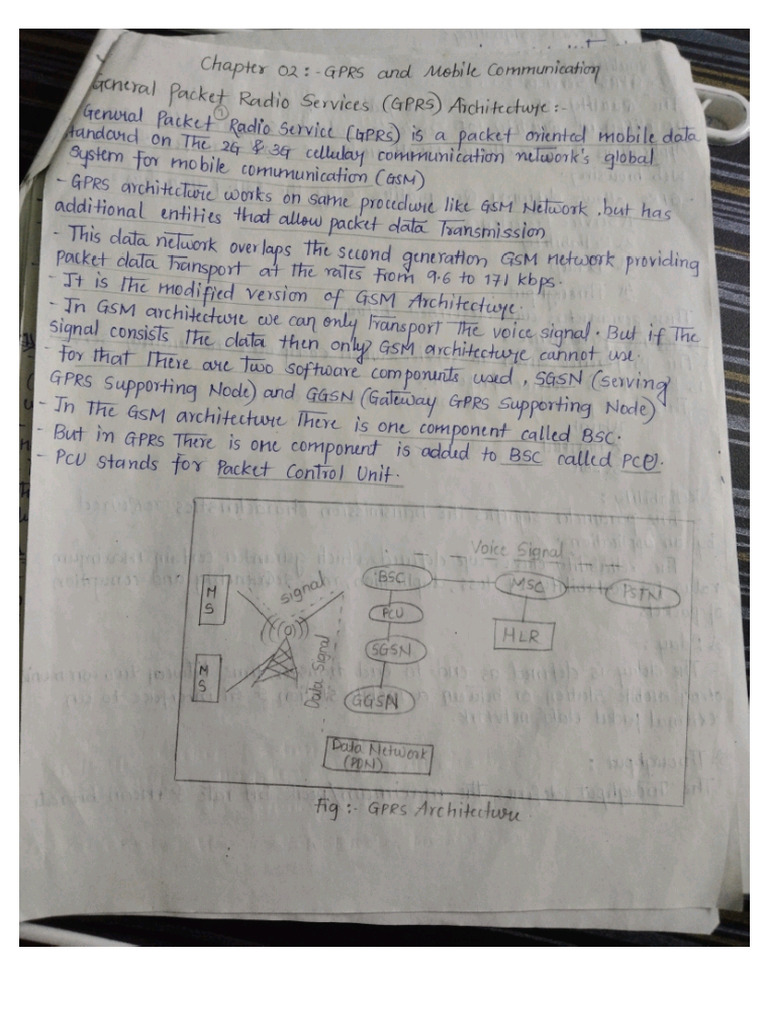 Chapter 02:- GPRS and Mobile Communication
General Packet Radio Services (GPRS) Architecture:-
①
General Packet Radio Service (GPRS) is a packet oriented mobile data
tandard on The 2G & 3G cellulay communication network's global
System for mobile communication (GSM)
- GPRS architecture works on same procedure like GSM Network, but has
additional entities that allow packet data Transmission
- This data network overlaps the second generation GSM network providing
packet data Transport at the rates from 9.6 to 171 kbps.
- It is the modified version of GSM Architecture.
- In GSM architecture we can only Transport The voice signal. But if The
signal consists The data then only GSM architecture cannot use.
- for that There are two software components used, SGSN (serving
GPRS Supporting Node) and GGSN (Gateway GPRS Supporting Node)
- In The GSM architecture There is one component called BSC.
- But in GPRS There is one component is added to BSC called PCU.
- PCU stands for Packet Control Unit.
Voice Signal
MS
signal
BSC
MSC
PSTN
PCU
HLR
SGSN
MS
Data Signal
GGSN
Data Network
(PDN)
Fig:- GPRS Architecture.